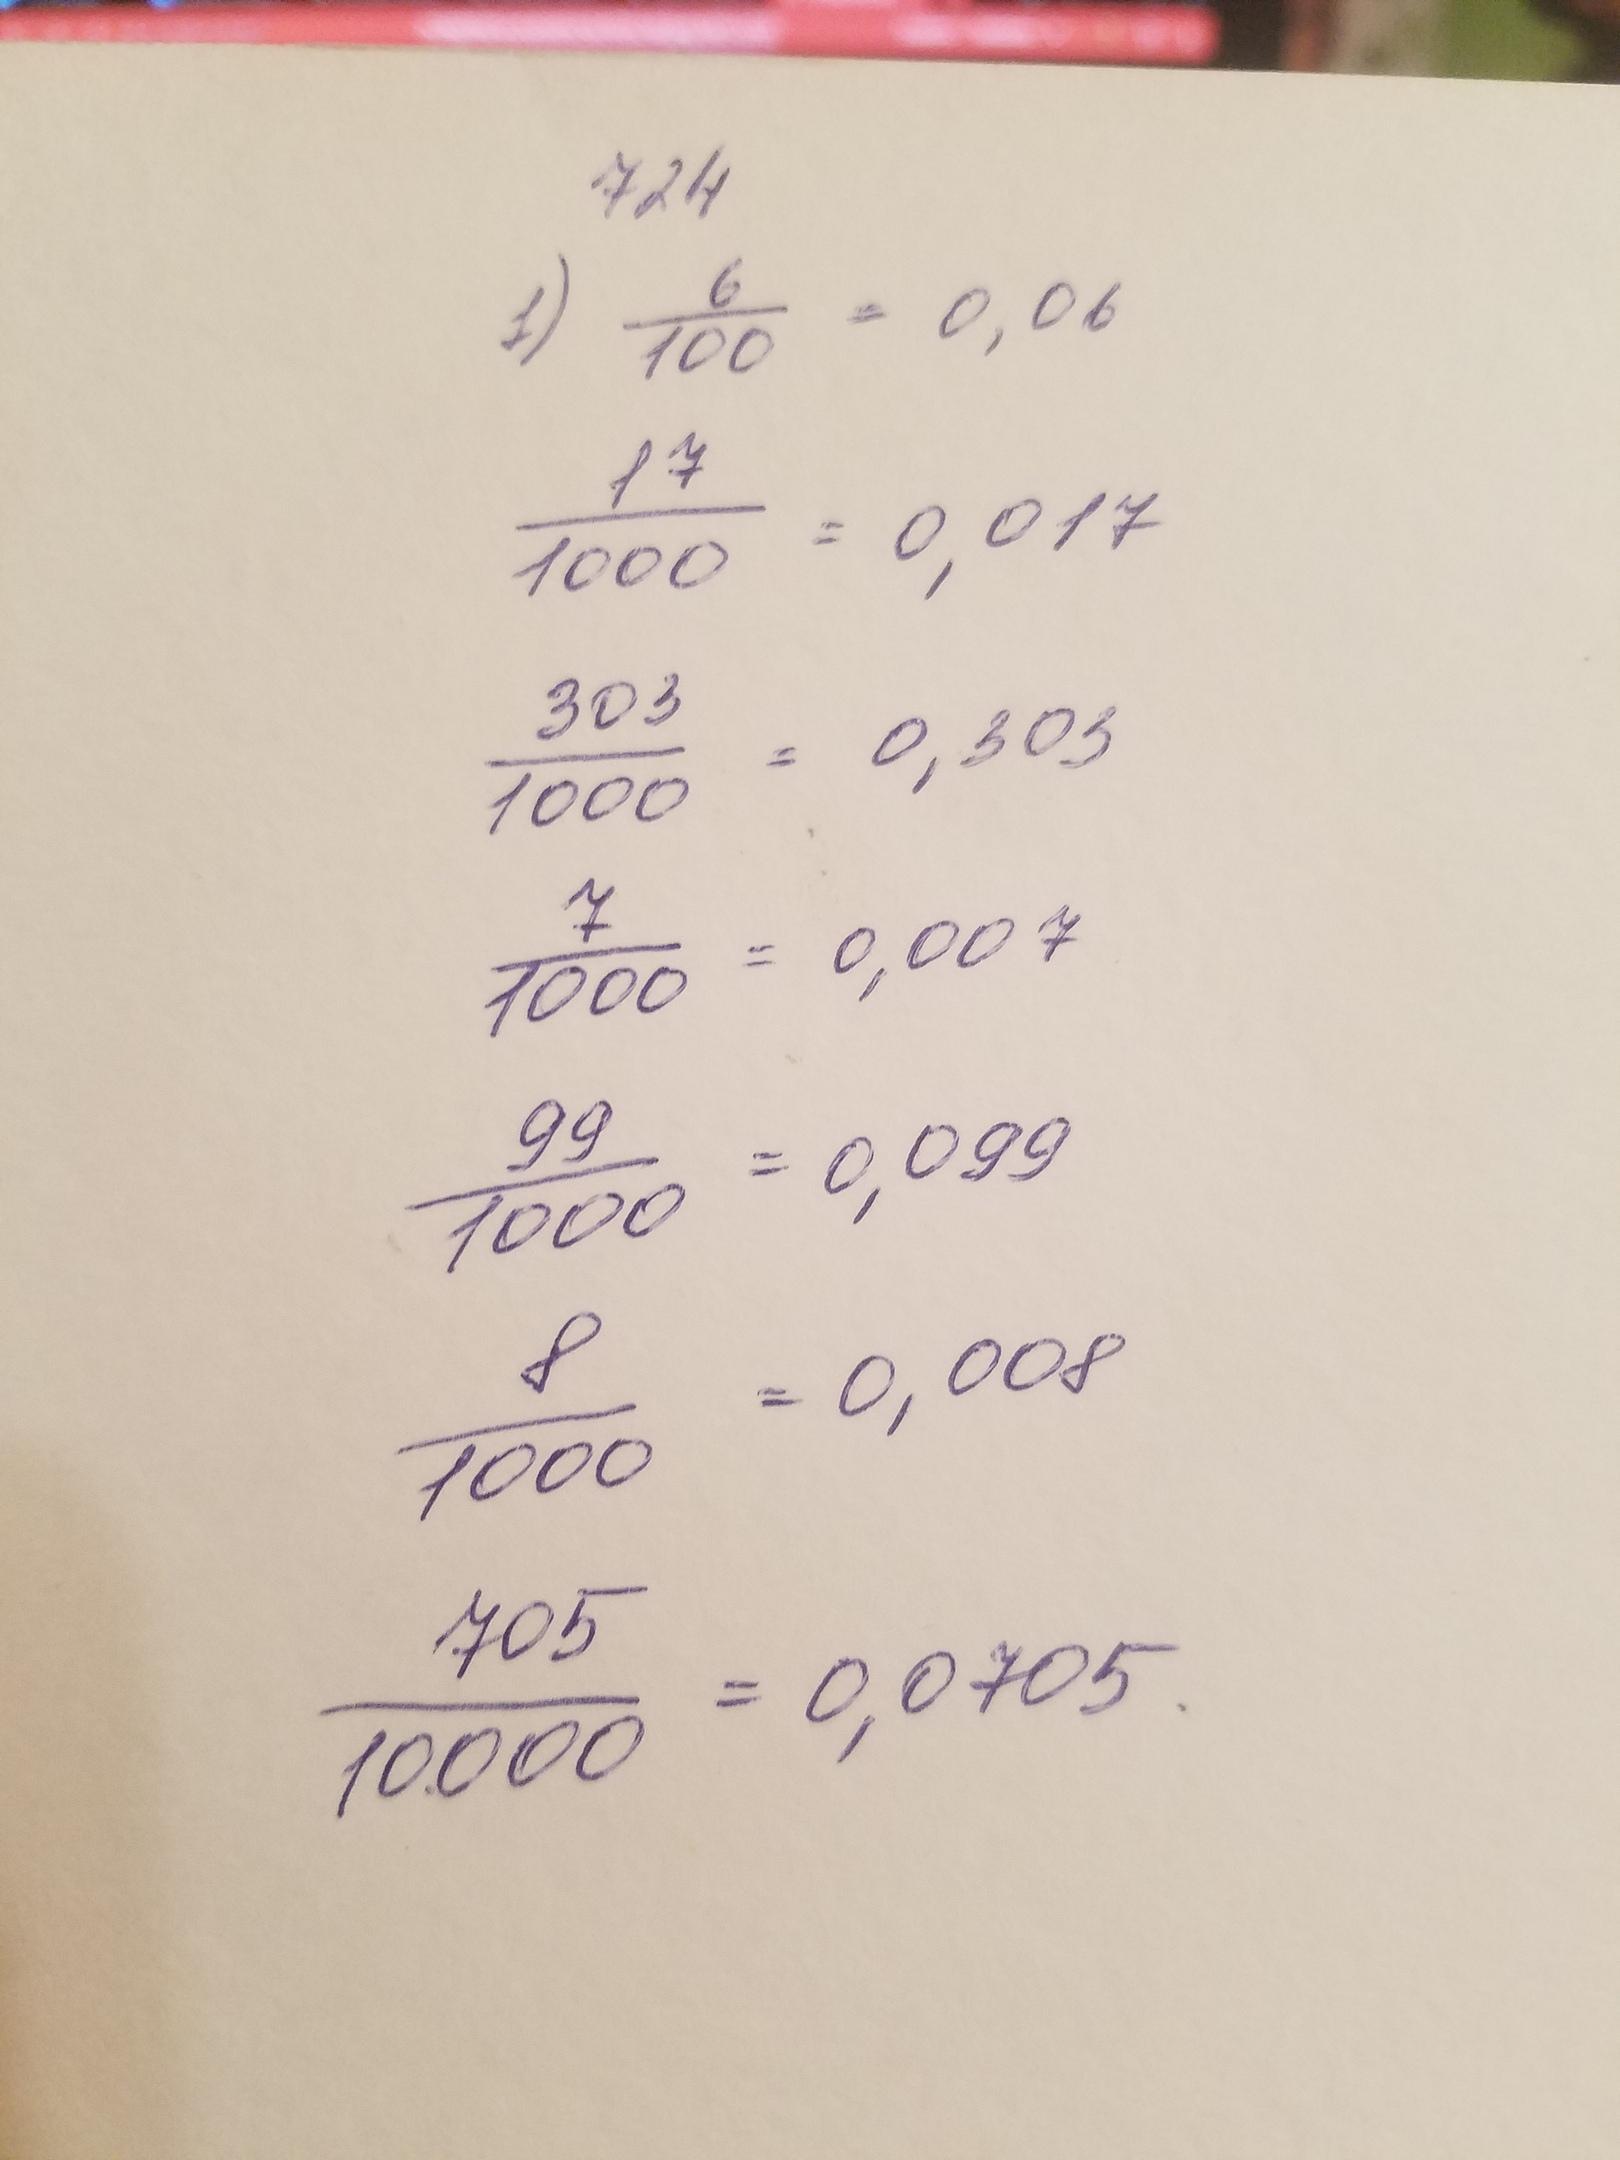 724
1) 6/100 = 0,06
17/1000 = 0,017
303/1000 = 0,303
7/1000 = 0,007
99/1000 = 0,099
8/1000 = 0,008
705/10000 = 0,0705.